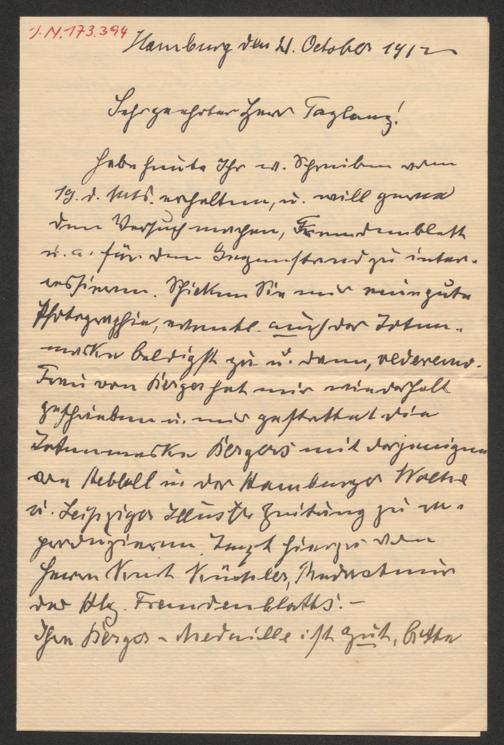 J.N. 173.394
Hamburg den 21. October 1912
Sehr geehrter Herr Taglang!
Habe heute Ihr w. Schreiben vom
19. d. Mts. erhalten, u. will gerne
den Versuch machen, Fremdenblatt
u. a. für den Gegenstand zu inter-
essieren. Schicken Sie mir eine gute
Photographie, eventl. auch der Toten-
maske baldigst zu u. dann,
Frau von Berger hat mir wiederholt
geschrieben u. mir gestattet die
Totenmaske Bergers mit derjenigen
von Hebbel in der Hamburger Woche
u. Leipziger Illustr Zeitung zu re-
produzieren. hierzu von
Herrn Redacteur
des Hbg. Fremdenblatts. –
Ihre Berger-Medaille ist gut, bitte